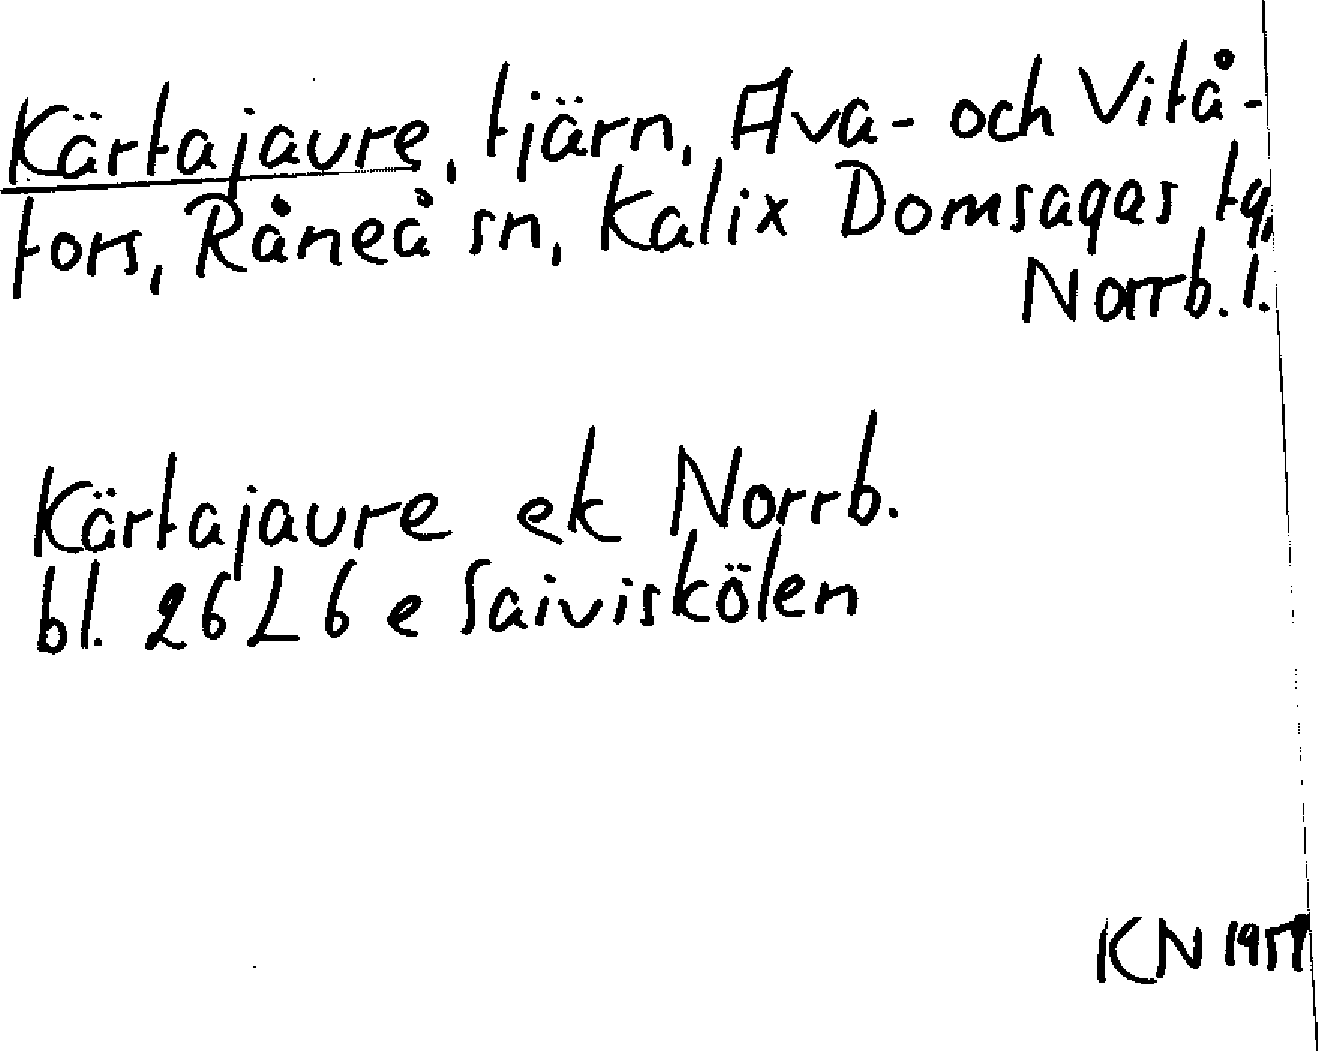 Kärtajaure, tjärn, Ava- och Vitå-
fors, Råneå sn, Kalix Domsagas tg,
Norrb. l.
Kärtajaure ek Norrb.
bl. 26 L 6 e Saiviskölen
KN